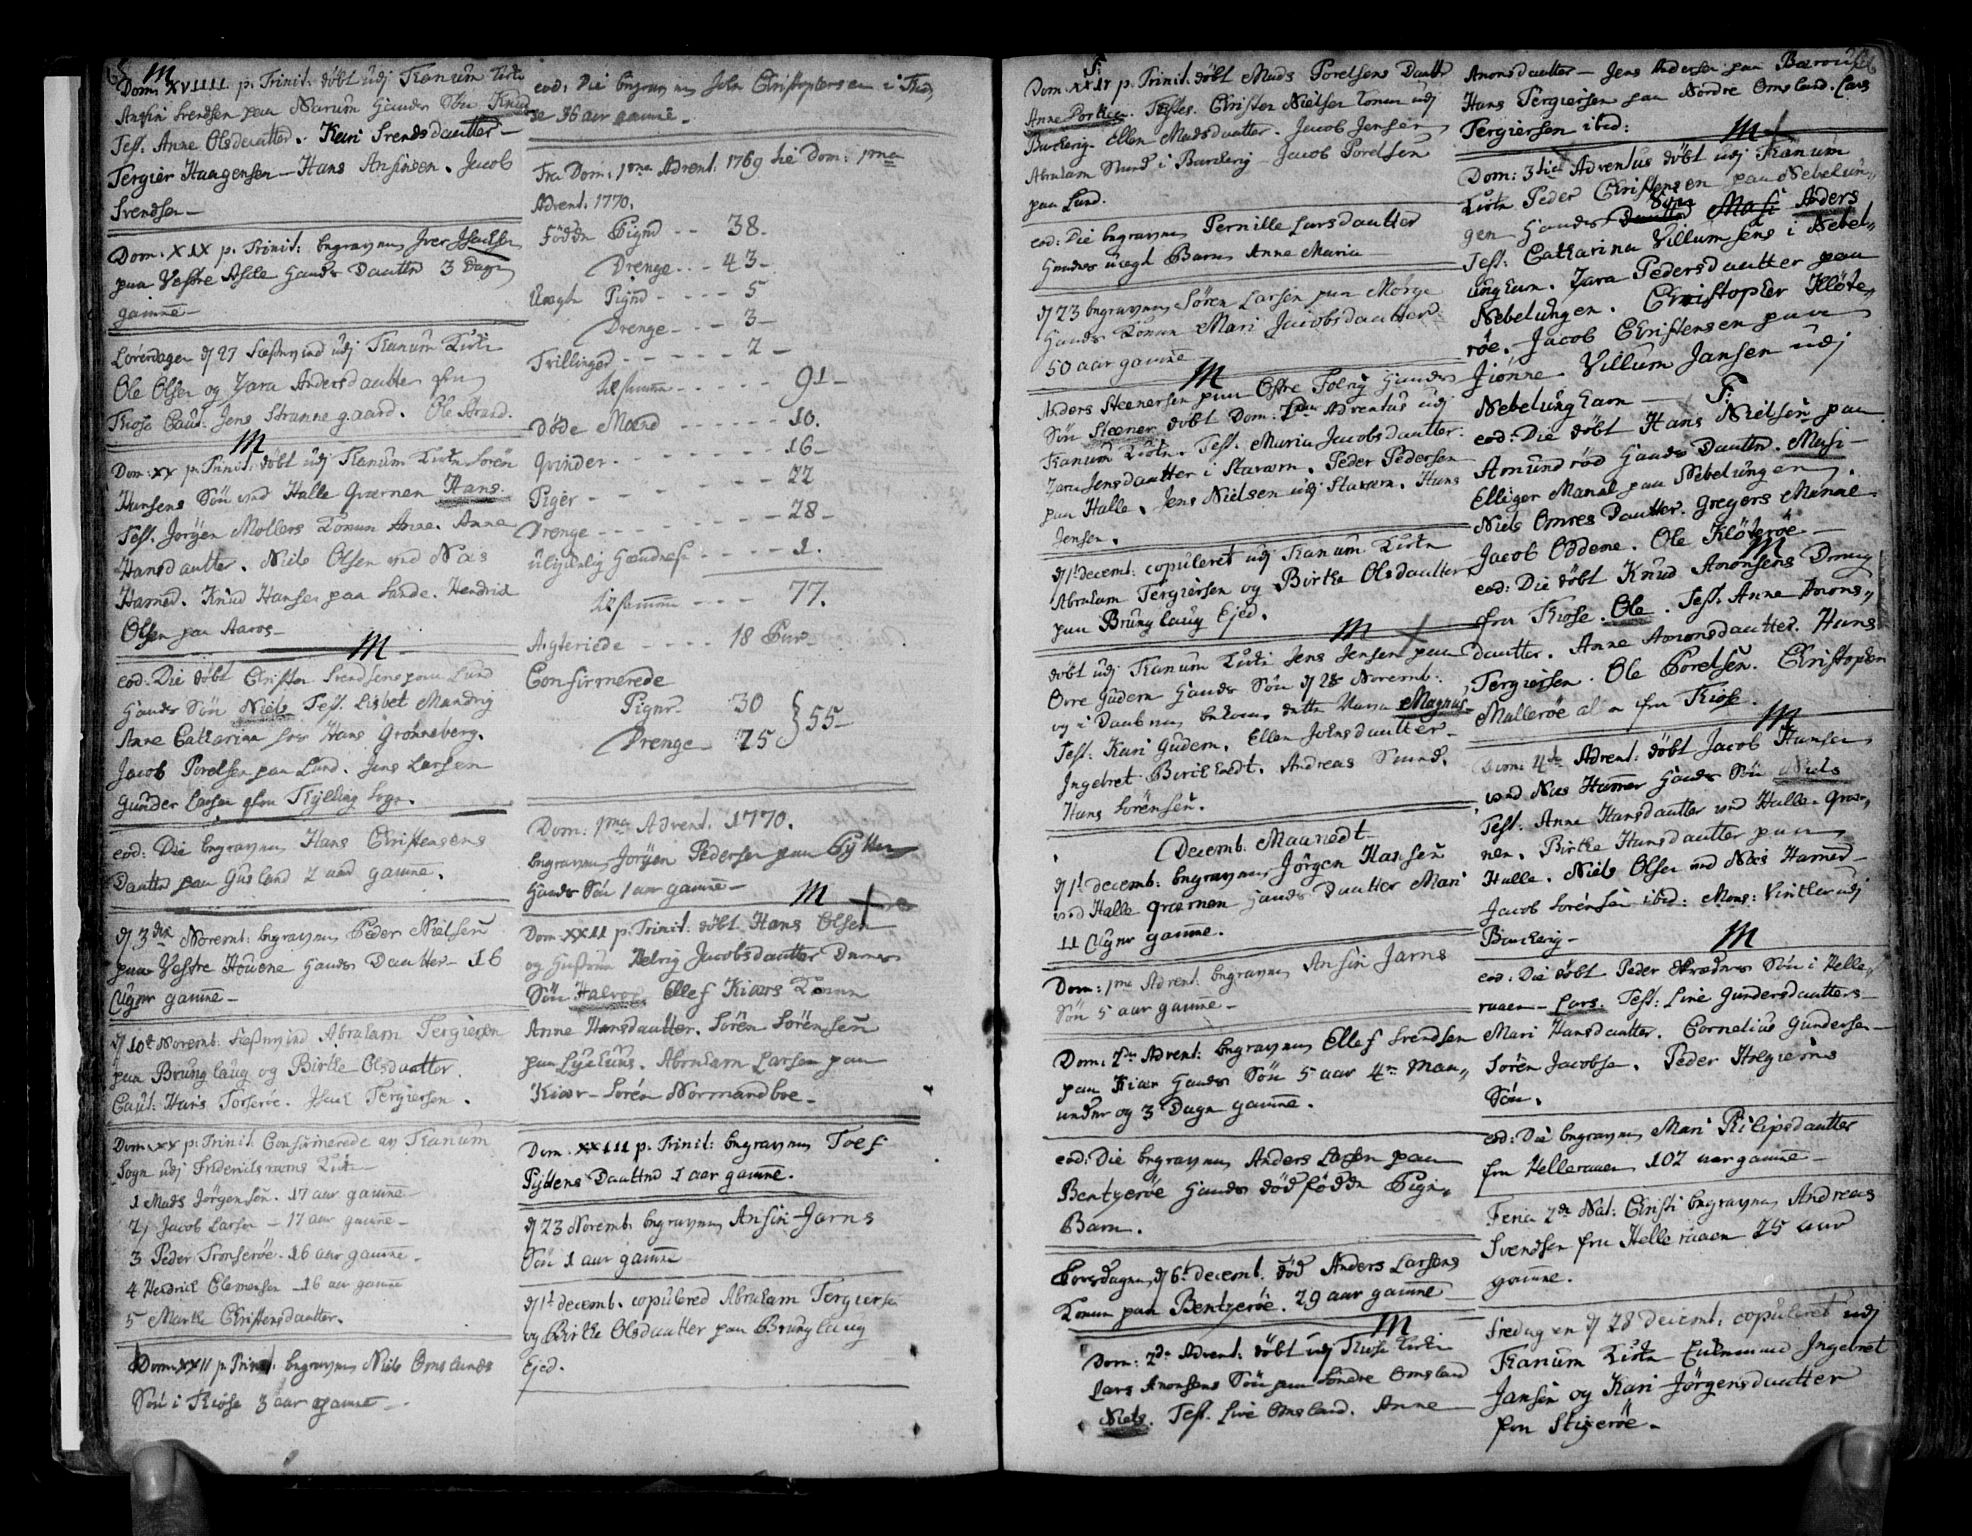 M
Dom: XVIIII p. Trinit. döbt udj Tanum Kirke
Ansin Svendsen paa Narum Hands Sön Knud
Test. Anne Olsdautter. Kari Svendsdautter
Tergier Haagensen - Hans Ansinsen. Jacob
Svendsen -
Dom. XIX p. Trinit: begraven Iver Isachsen
paa Vestre Aske Hands Dautter 3 Dage
gamle
Löverdagen d 27 udj Tanum Kirke
Ole Olsen og Zara Andersdautter
Kiose Caut: Jens Strannegaard. Ole Strand.
M
Dom: XX p. Trinit: döbt udj Tanum Kirke Sören
Hansens Sön ved Halle Qværnen Hans
Test. Jörgen Mollers Konne Anne. Anne
Hansdautter. Niels Olsen ved Næs
Hamed. Knud Hansen paa Sande. Hendrick
Olsen paa Aaros -
M
eod: Die döbt Christen Svendsens paa Lund
Hands Sön Niels Test. Lisbet Mandrig
Anne Catharina Hans Grönneberg.
Jacob Porelsen paa Lund. Jens Larsen
Gunder Larsen
eod: Die begraven Hans Christensens
Dautter paa Gusland 2 aar gamle.
d 3die Novemb: begraven Peder Nielsen
paa Vestre Houene Hands Dautter - 16
Uger gamle -
d 10de Novemb. Abraham Tergiersen
paa Brunglaug og Birthe Olsdautter
Caut: Hans Torseroe. Isack Tergiersen.
Dom. XX p: Trinit. Confirmerede af Tanum
Sogn udj Fridericksværns Kirke
1 Mads Jörgensen. 17 aar gamle -
2 Jacob Larsen - 17 aar gamle -
3 Peder Tronseröe. 16 aar gamle -
4 Hendrick Clemensen - 16 aar gamle
5 Marthe Christensdautter.
Dom: XXII p. Trinit. begraven Niels Omslands
Sön i Kiose 3 aar gamle -
eod: Die begraven John Christophersen i
36 aar gamle -
Fra Dom: 1ma Advent. 1769 til Dom: 1ma
Advent. 1770.
Födde Pigend - - 38 -
Drenge - - - 43 -
Uægte Pigend - - - - 5
Drenge - - - - 3 -
Tvillinger - - - - - - 2 -
tilsamen - - - - - 91 -
Döde Mænd - - - - - - 10.
Qvinder - - - - - - - 16 -
Piger - - - - - - - - 22
Drenge - - - - - - - - 28 -
ulyckelig Hændelse - - - - - 1.
tilsamen - - - - 77.
Agteviede - - - - 18 Par
Confirmerede
Piger 30
Drenge 25 } 55 -
Dom: 1ma Advent. 1770.
begraven Jörgen Pedersen paa
Hands Sön 1 aar gamle -
M
Dom. XXII p. Trinit. döbt Hans Olsen
og Hustrue Helvig Jacobsdautter Deres
Sön Halvor Ellef Kiærs Konne
Anne Hansdautter. Sören Sörensen
paa Lyckens. Abraham Larsen paa
Kiær - Sören Normandboe -
Dom. XXIII p. Trinit: begraven Toef
Pyttens Dautter 1 aar gamle.
d 23 Novemb: begraven Ansin Jarns
Sön 1 aar gamle
d 1t decemb. copulered Abraham Tergiersen
og Birthe Olsdautter paa Brunglaug
Ejed.
F:
Dom XXIV p. Trinit. döbt Mads Porelsens Dautter
Anne Dorthea. Testes. Christen Nielsen Konne udj
Barkevig - Ellen Madsdautter. Jacob Jensen
Abraham Smud i Barkevig - Jacob Porelsen
paa Lund.
eod: Die begraven Pernille Larsdautter
Hendes uægte Barn Anne Maria
d 23 begraven Sören Larsen paa Morge
Hands Konne Mari Jacobsdautter
50 aar gamle
M
Anders Steenersen paa Östre Tolvig Hands
Sön Steener döbt Dom: 1ma Adventus udj
Tanum Kirke. Test. Maria Jacobsdautter.
Zara Jensdautter i Staværn. Peder Pedersen
paa Halle. Jens Nielsen udj Staværn. Hans
Jensen.
d 1t decemb: copuleret udj Tanum Kirke
Abraham Tergiersen og Birthe Olsdautter
paa Brunglaug Ejed.
M
döbt udj Tanum Kirke Jens Jensen paa
Övre Gudem Hands Sön d 28 Novemb:
og i Daaben bekom dette Navn Magnus
Test: Kari Gudem. Ellen Johnsdautter -
Ingebret Birckevedt. Andreas Smud.
Hans Sörensen.
Decemb. Maanedt
d 1t decemb: begraven Jörgen Hansen
ved Halle Qværnen Hands Dautter Mari
11 Uger gamle.
Dom: 1ma Advent begraven Ansin Jarns
Sön 5 aar gamle -
Dom: 2da Advent: begraven Ellef Svendsen
paa Kiær Hands Sön 5 aar 4re Maa,,
neder og 3 Dage gamle.
eod: Die begraven Anders Larsen paa
Bentzeröe Hands dödfödde Pige
Barn.
Torsdagen d 6te decemb. död Anders Larsens
Konne paa Bentzeröe. 29 aar gamle
M
Dom: 2da Advent: döbt udj Kiose Kirke
Lars Anonsens Sön paa Söndre Omsland
Niels. Test. Live Omsland. Anne
Anonsdautter - Jens Andersen paa
Hans Tergiersen paa Nordre Omsland. Lars
Tergiersen ibid:
M
Dom: 3tia Adventus döbt udj Tanum
Kirke Peder Christensen paa Nebelun,,
gen Hands Sön Anders
Test: Catharina Villumsens i Nebel,,
unghavn. Zara Pedersdautter paa
Nebelungen. Christopher Klöte,,
röe. Jacob Christensen paa
Jionne Villum Jansen udj
Nebelunghavn -
F:
eod: Die döbt Hans Nielsen paa
Amundröd Hands Dautter. Masi -
Elliger Manne paa Nebelungen.
Niels Omres Dautter. Gregers Manne
Jacob Oddene. Ole Klöteröe -
M
eod: Die döbt Knud Anonsens Dreng
fra Kiose. Ole. Test. Anne Anons,,
dautter. Anne Anonsdautter. Hans
Tergiersen. Ole Porelsen. Christopher
Malleröe alle fra Kiose.
M
Dom: 4de Advent: döbt Jacob Hansen
ved Næs Hamer Hands Sön Niels
Test: Anne Hansdautter ved Halle-Qvær,,
nen. Birthe Hansdautter paa
Halle. Niels Olsen ved Næs Hamed -
Jacob Sörensen ibid: Mons: Vinther udj
Barckevig -
M
eod: Die döbt Peder Skræders Sön i Helle,,
raaen - Lars. Test: Live Gundersdautters -
Mari Hansdautter. Cornelius Gundersen -
Sören Jacobsen. Peder Holgiers
Sön.
eod: Die begraven Mari Philipsdautter
fra Helleraaen 102 aar gamle -
Feria 2da Nat: Christi begraven Andreas
Svendsen fra Helleraaen 25 aar
gamle.
Fredagen d 28 decemb: copuleret udj
Tanum Kirke Ingebret
Jansen og Kari Jörgensdautter
paa Stigeröe -